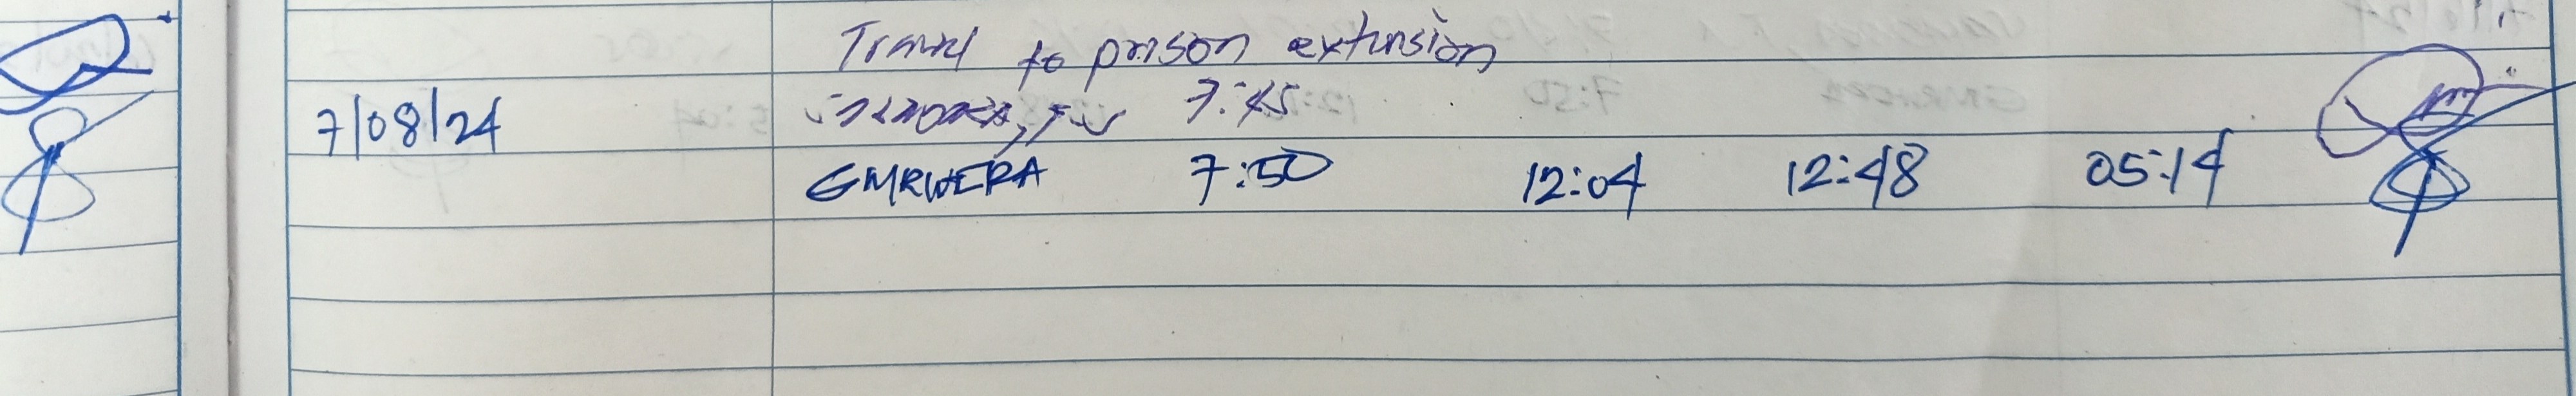 Travel to prison extension
7/08/24 7:45
GMRWERA 7:50 12:04 12:48 05:14